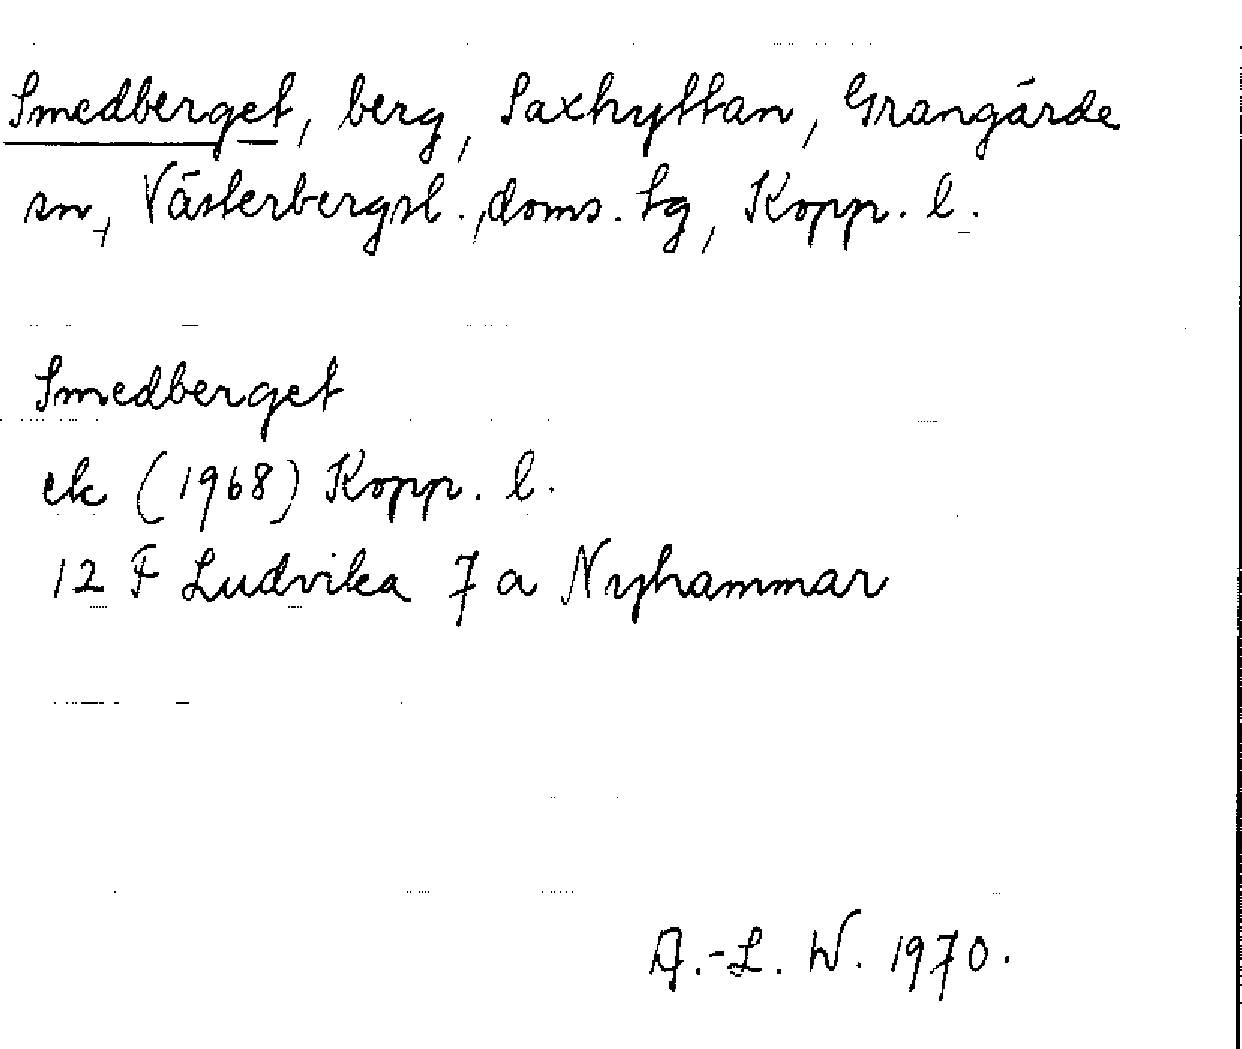 Smedberget, berg, Saxhyttan, Grangärde
sn, Västerbergsl., doms. tg, Kopp. l.
Smedberget
ek (1968) Kopp. l.
12 F Ludvika 7 a Nyhammar
A.-L. W. 1970.